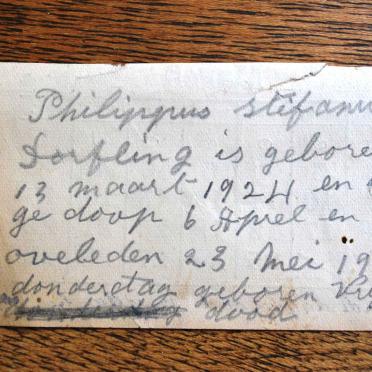 Philippus stifanu
Dorfling is gebore
13 maart 1924 en
ge doop 6 Aprel en
oveleden 23 Mei 19
donderstag geboren Vry
dood